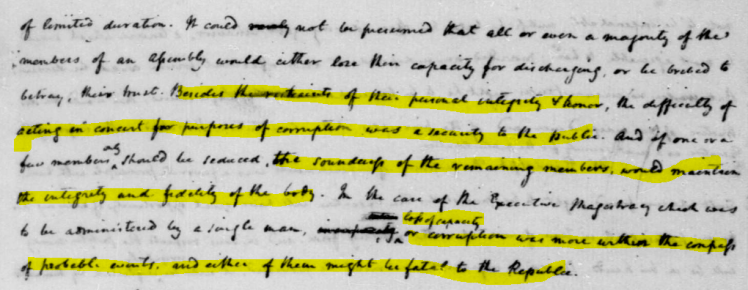 of limited duration. It could not be presumed that all or even a majority of the
members of an Assembly would either lose their capacity for discharging, or be bribed to
betray, their trust. Besides the restraints of their personal integrity & honor, the difficulty of
acting in concert for purposes of corruption was a security to the public. And if one or a
few members only should be seduced, the soundness of the remaining members, would maintain
the integrity and fidelity of the body. In the case of the Executive Magistracy which was
to be administered by a single man, loss of capacity
or corruption was more within the compass
of probable events, and either of them might be fatal to the Republic.